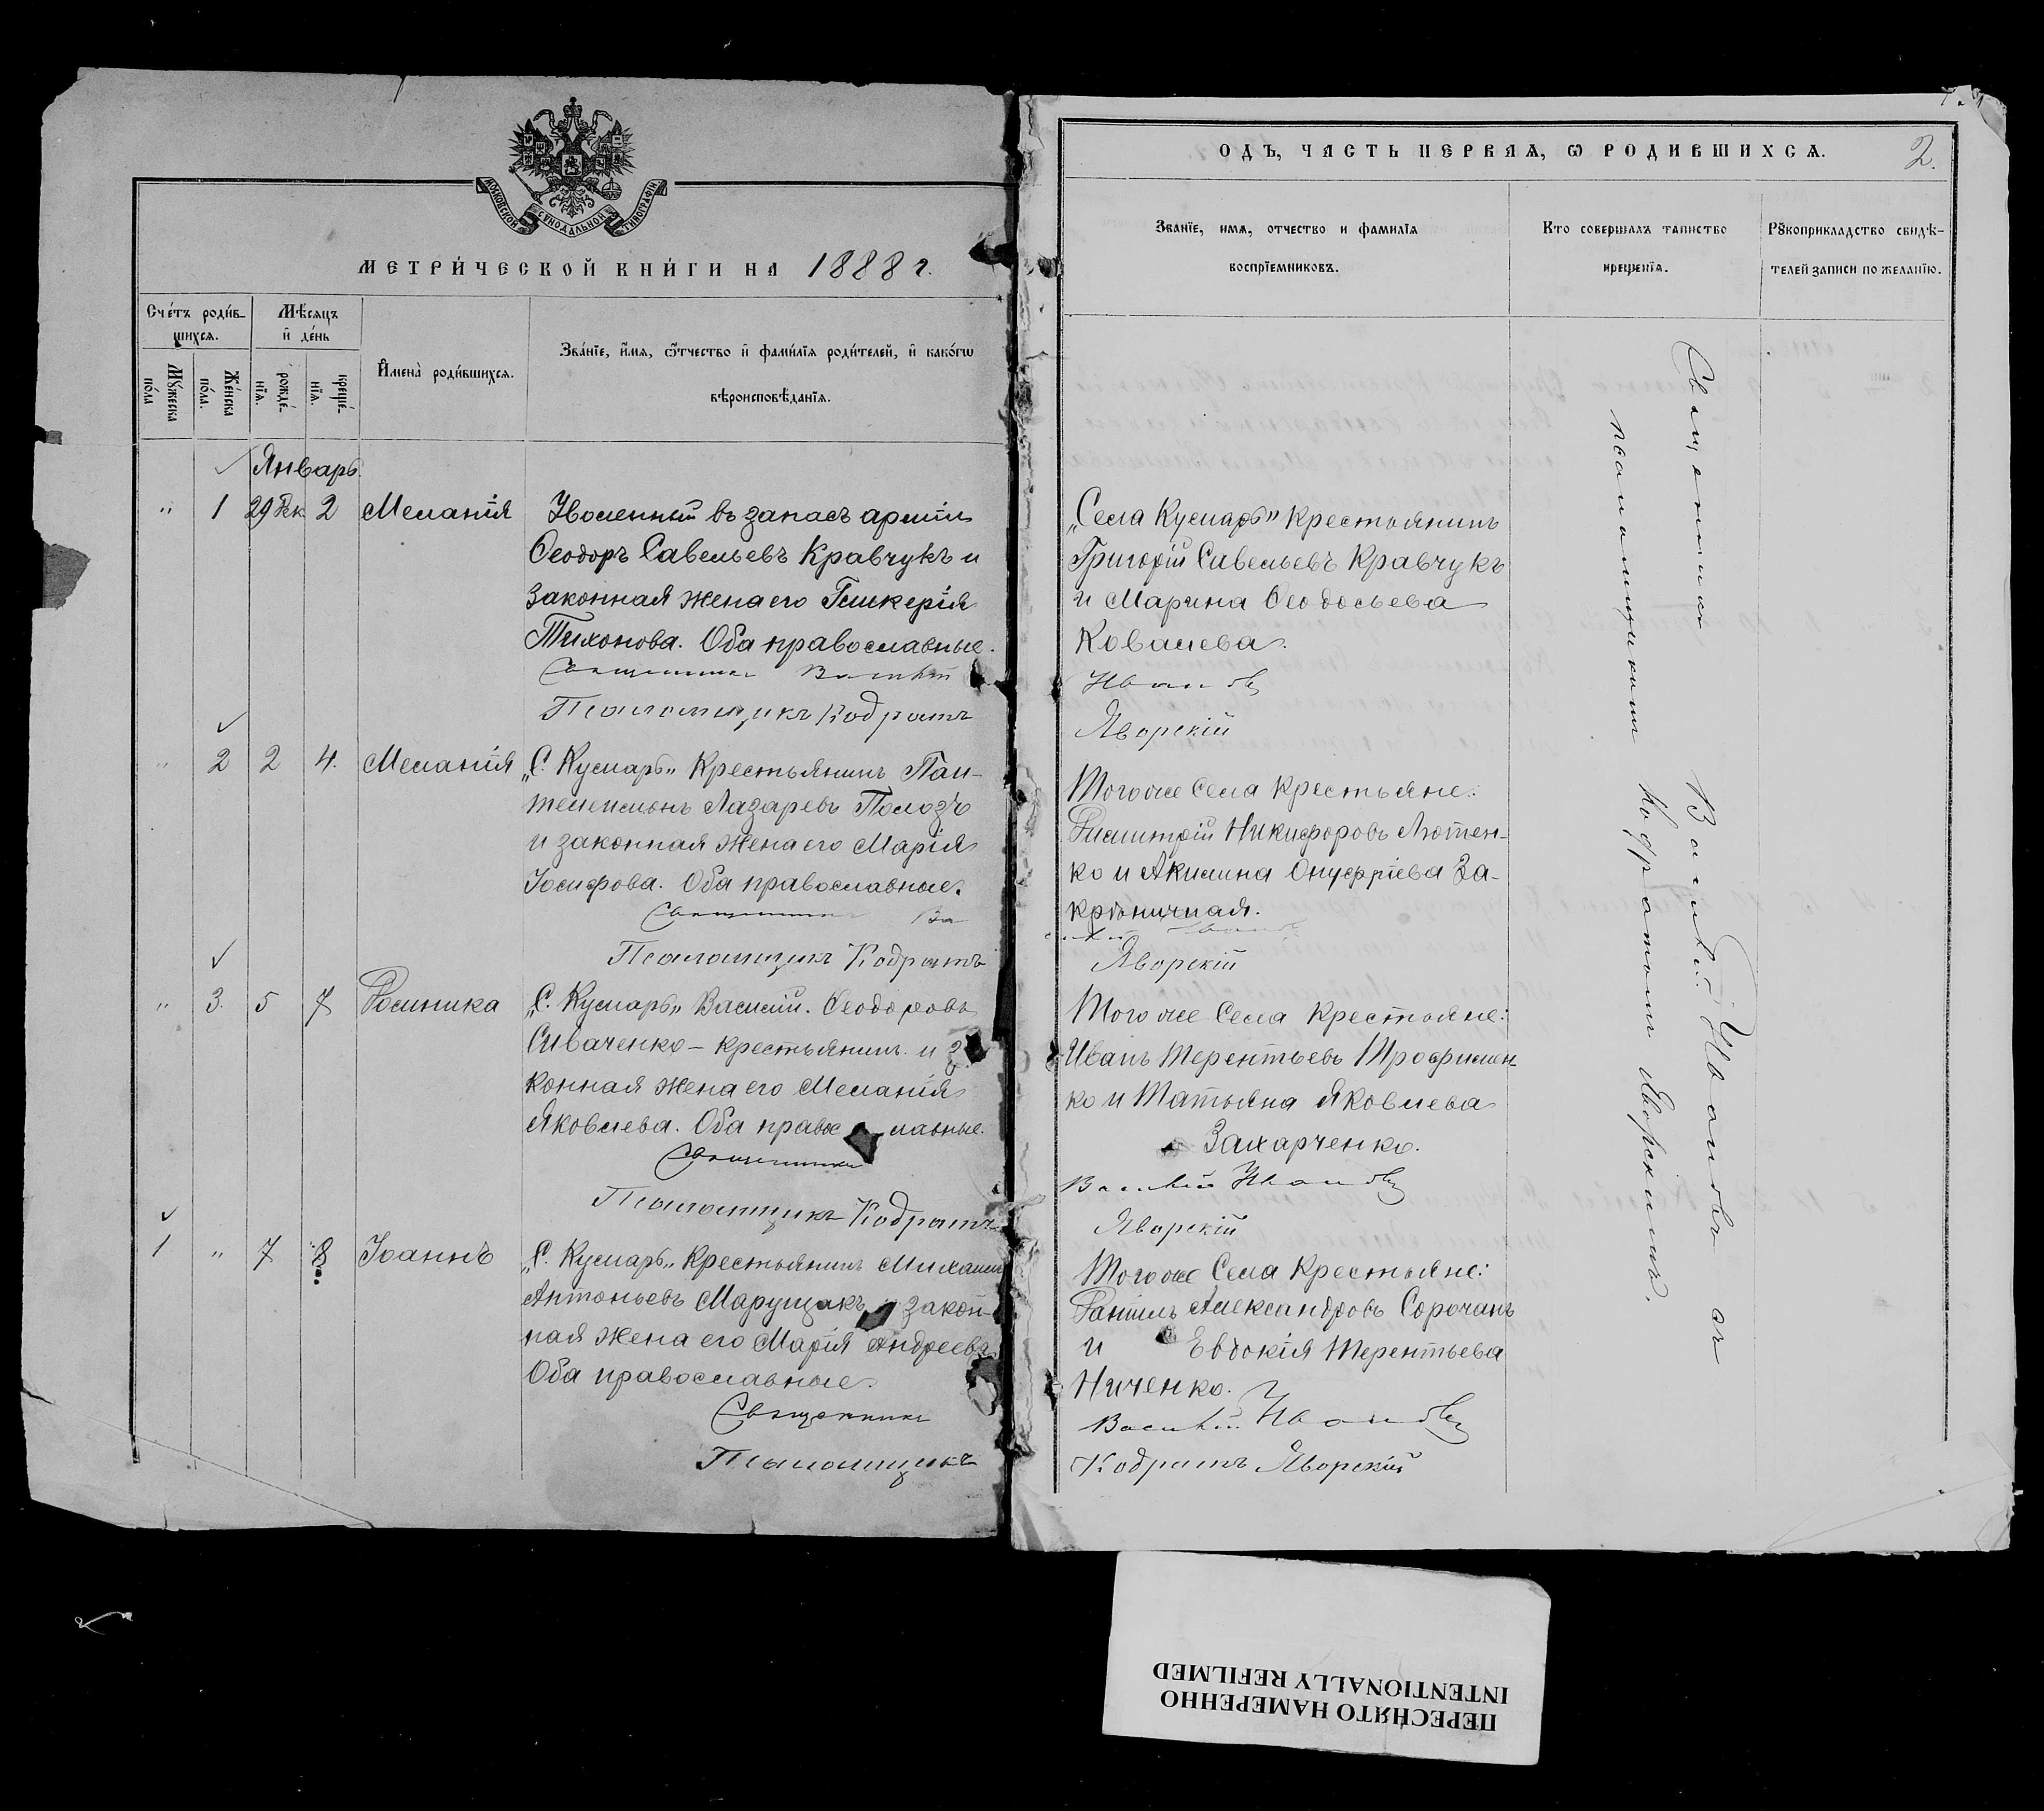 МОСКОВСКОЙ СѴНОДАЛЬНОЙ ТИПОГРАФІИ
МЕТРИ́ЧЕСКОЙ КНИ́ГИ НА 1888 г.
Сче́тъ роди́в-
шихсѧ.
Мѣ́сѧцъ
и҆ де́нь
Мꙋ́жеска
по́ла
Же́нска
по́ла.
рожде́-
нїѧ.
креще́-
нїѧ.
И҆мена̀ роди́вшихсѧ.
Зва́нїе, и҆́мѧ, ѻ҆́тчество и҆ фами́лїѧ роди́телей, и҆ како́гѡ
вѣроисповѣ́данїѧ.
Январь.
" 1 29 Дек. 2 Меланія
Уволенный въ запасъ арміи
Ѳеодоръ Савельевъ Кравчукъ и
законная жена его Гликерія
Тихонова. Оба православные.
Священникъ Василій
Псаломщикъ Кодратъ
" 2 2 4. Меланія
„С. Кульарь„ Крестьянинъ Пан-
телеимонъ Лазаревъ Полозъ
и законная жена его Марія
Іосифова. Оба православные.
Священникъ Ва
Псаломщикъ Кодратъ
" 3. 5 7 Домника
„С. Кульарь„ Василій Ѳеодоровъ
Сиваченко – крестьянинъ и за
конная жена его Меланія
Яковлева. Оба правос лавные.
Священникъ
Псаломщикъ Кодратъ
1 " 7 8 Іоаннъ
„С. Кульарь„ Крестьянинъ Михаилъ
Антоньевъ Марущакъ и закон-
ная жена его Марія Андреева
Оба православные.
Священникъ
Псаломщикъ
ОДЪ, ЧАСТЬ ПЕРВАѦ, Ѡ РОДИВШИХСѦ.
2.
Званїе, имѧ, отчество и фамилїѧ
воспрїемниковъ.
Кто совершалъ таинство
крещенїѧ.
Рꙋкоприкладство свидѣ-
телей записи по желанїю.
„Села Кульарь" крестьянинъ
Григорій Савельевъ Кравчукъ
и Марина Ѳеодосьева
Ковалева.
Ивановъ
Яворскій
Тогоже Села крестьяне:
Димитрій Никифоровъ Лютен-
ко и Акилина Онуфріева За-
кръничная.
силій Ивановъ
Яворскій
Тогоже Села Крестьяне:
Иванъ Терентьевъ Трофимен
ко и Татьяна Яковлева
Захарченко.
Василій Ивановъ
Яворскій
Тогоже Села Крестьяне:
Даніилъ Александровъ Сорочанъ
и Евдокія Терентьева
Ниченко.
Василій Ивановъ
Кодратъ Яворскій
Священникъ Василій Ивановъ съ
псаломщикомъ Кодратомъ Яворскимъ.
ПЕРЕСНЯТО НАМЕРЕННО
INTENTIONALLY REFILMED